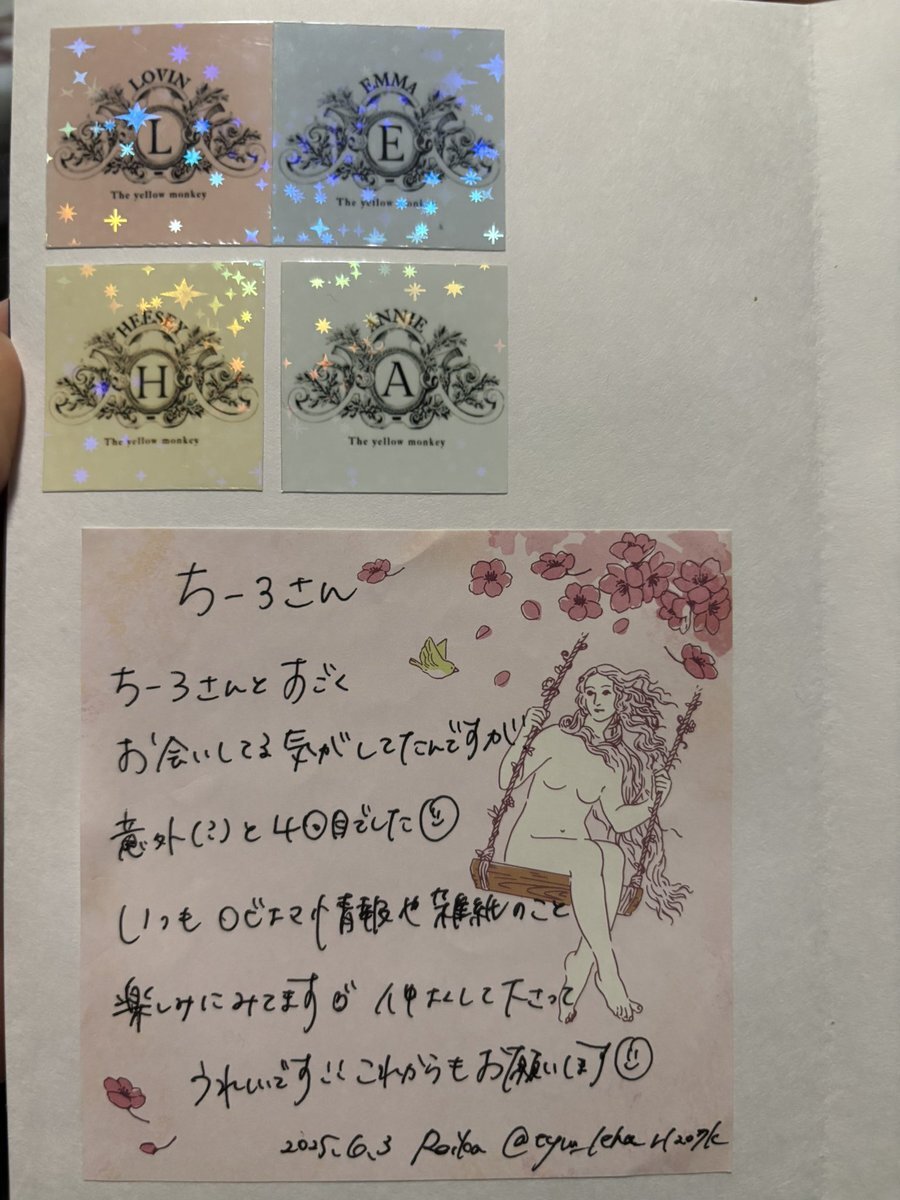 LOVIN
L
The yellow monkey
EMMA
E
The yellow monk
HEESEY
H
The yellow monkey
ANNIE
A
The yellow monkey
ちーろさん
ちーろさんとすごく
お会いしてる気がしてたんですが
意外(?)と4回目でした
いつもロビ 情報や雑紙のこと
楽しみにみてます 仲よくして下さって
うれしいです!! これからもお願いします
2025.6.3